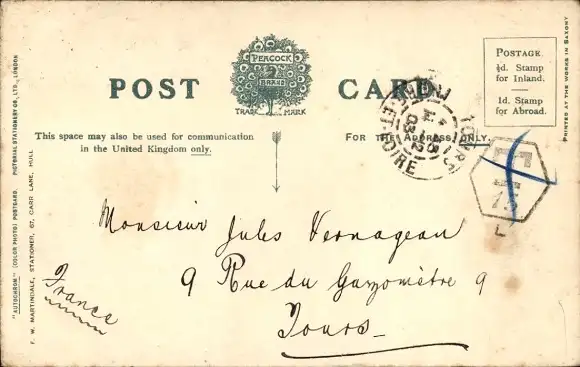 POST CARD
PEACOCK
BRAND
TRADE MARK
POSTAGE
½d. Stamp
for Inland.
1d. Stamp
for Abroad.
PRINTED AT THE WORKS IN SAXONY
This space may also be used for communication
in the United Kingdom only.
FOR THE ADDRESS ONLY.
TOURS
ET-LOIRE
T
15
L
Monsieur Jules Vernageau
9 Rue du Gazomètre 9
Tours
France
"AUTOCHROM" (COLOR PHOTO) POSTCARD. PICTORIAL STATIONERY CO., LTD., LONDON
F. W. MARTINDALE, STATIONER, 67, CARR LANE, HULL